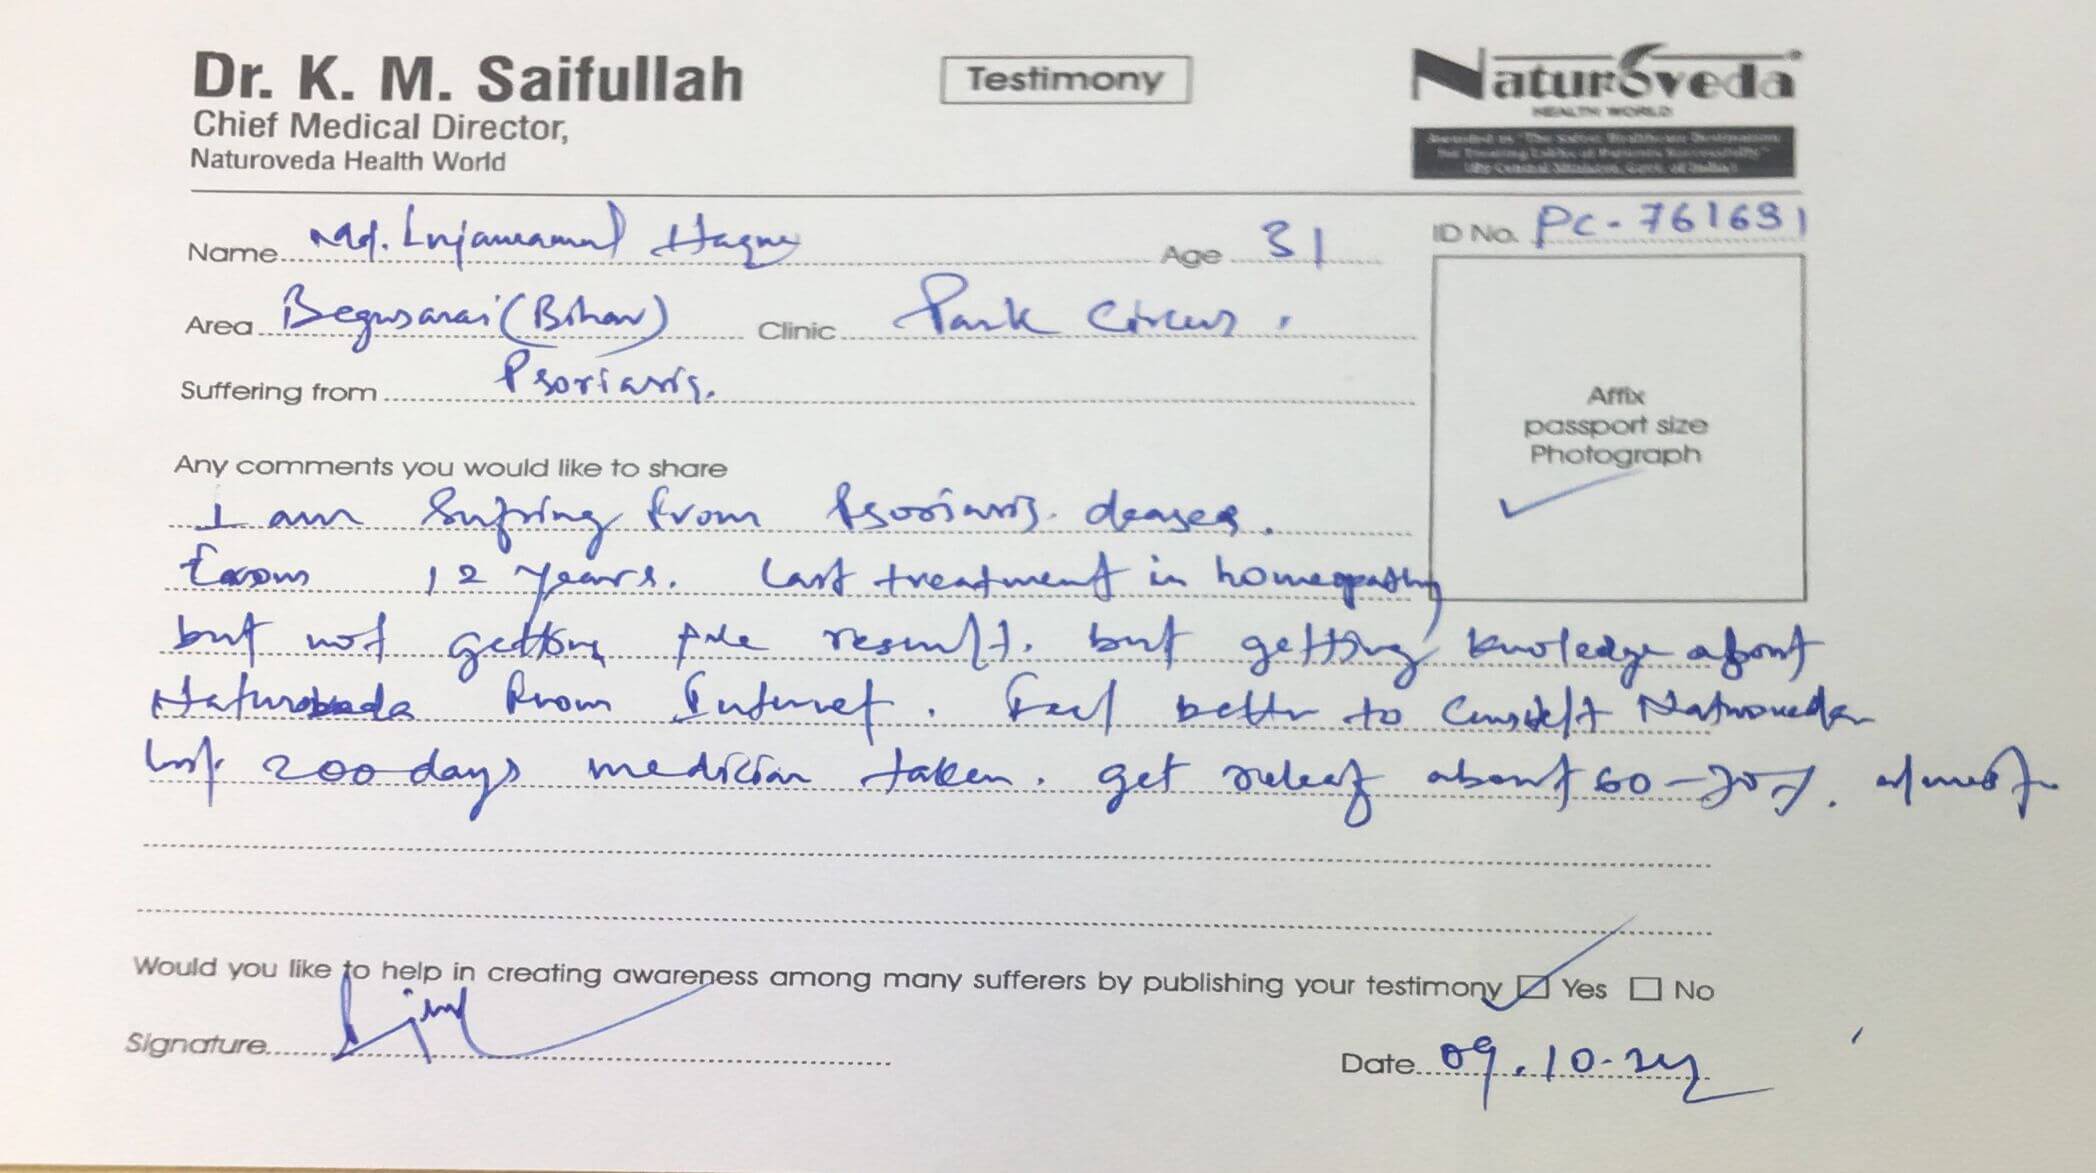 Dr. K. M. Saifullah
Chief Medical Director,
Naturoveda Health World
Testimony
Naturoveda
HEALTH WORLD
Name Md. Haque
Age 31
ID No. PC-761691
Area Begusarai (Bihar) Clinic Park Circus.
Suffering from Psoriasis.
Affix
passport size
Photograph
Any comments you would like to share
I am Sufring from Psoriasis deases.
from 12 years. last treatment in homeopathy
but not getting result. but getting knowledge about
Naturobeda from Internet. Feel better to Naturoveda
200 days medician taken. get releaf about 60-70%. almost
Would you like to help in creating awareness among many sufferers by publishing your testimony Yes No
Signature
Date 09.10.24